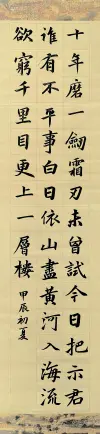 十年磨一劍霜刃未曾試今日把示君
誰有不平事白日依山盡黃河入海流
欲窮千里目更上一層樓
甲辰初夏